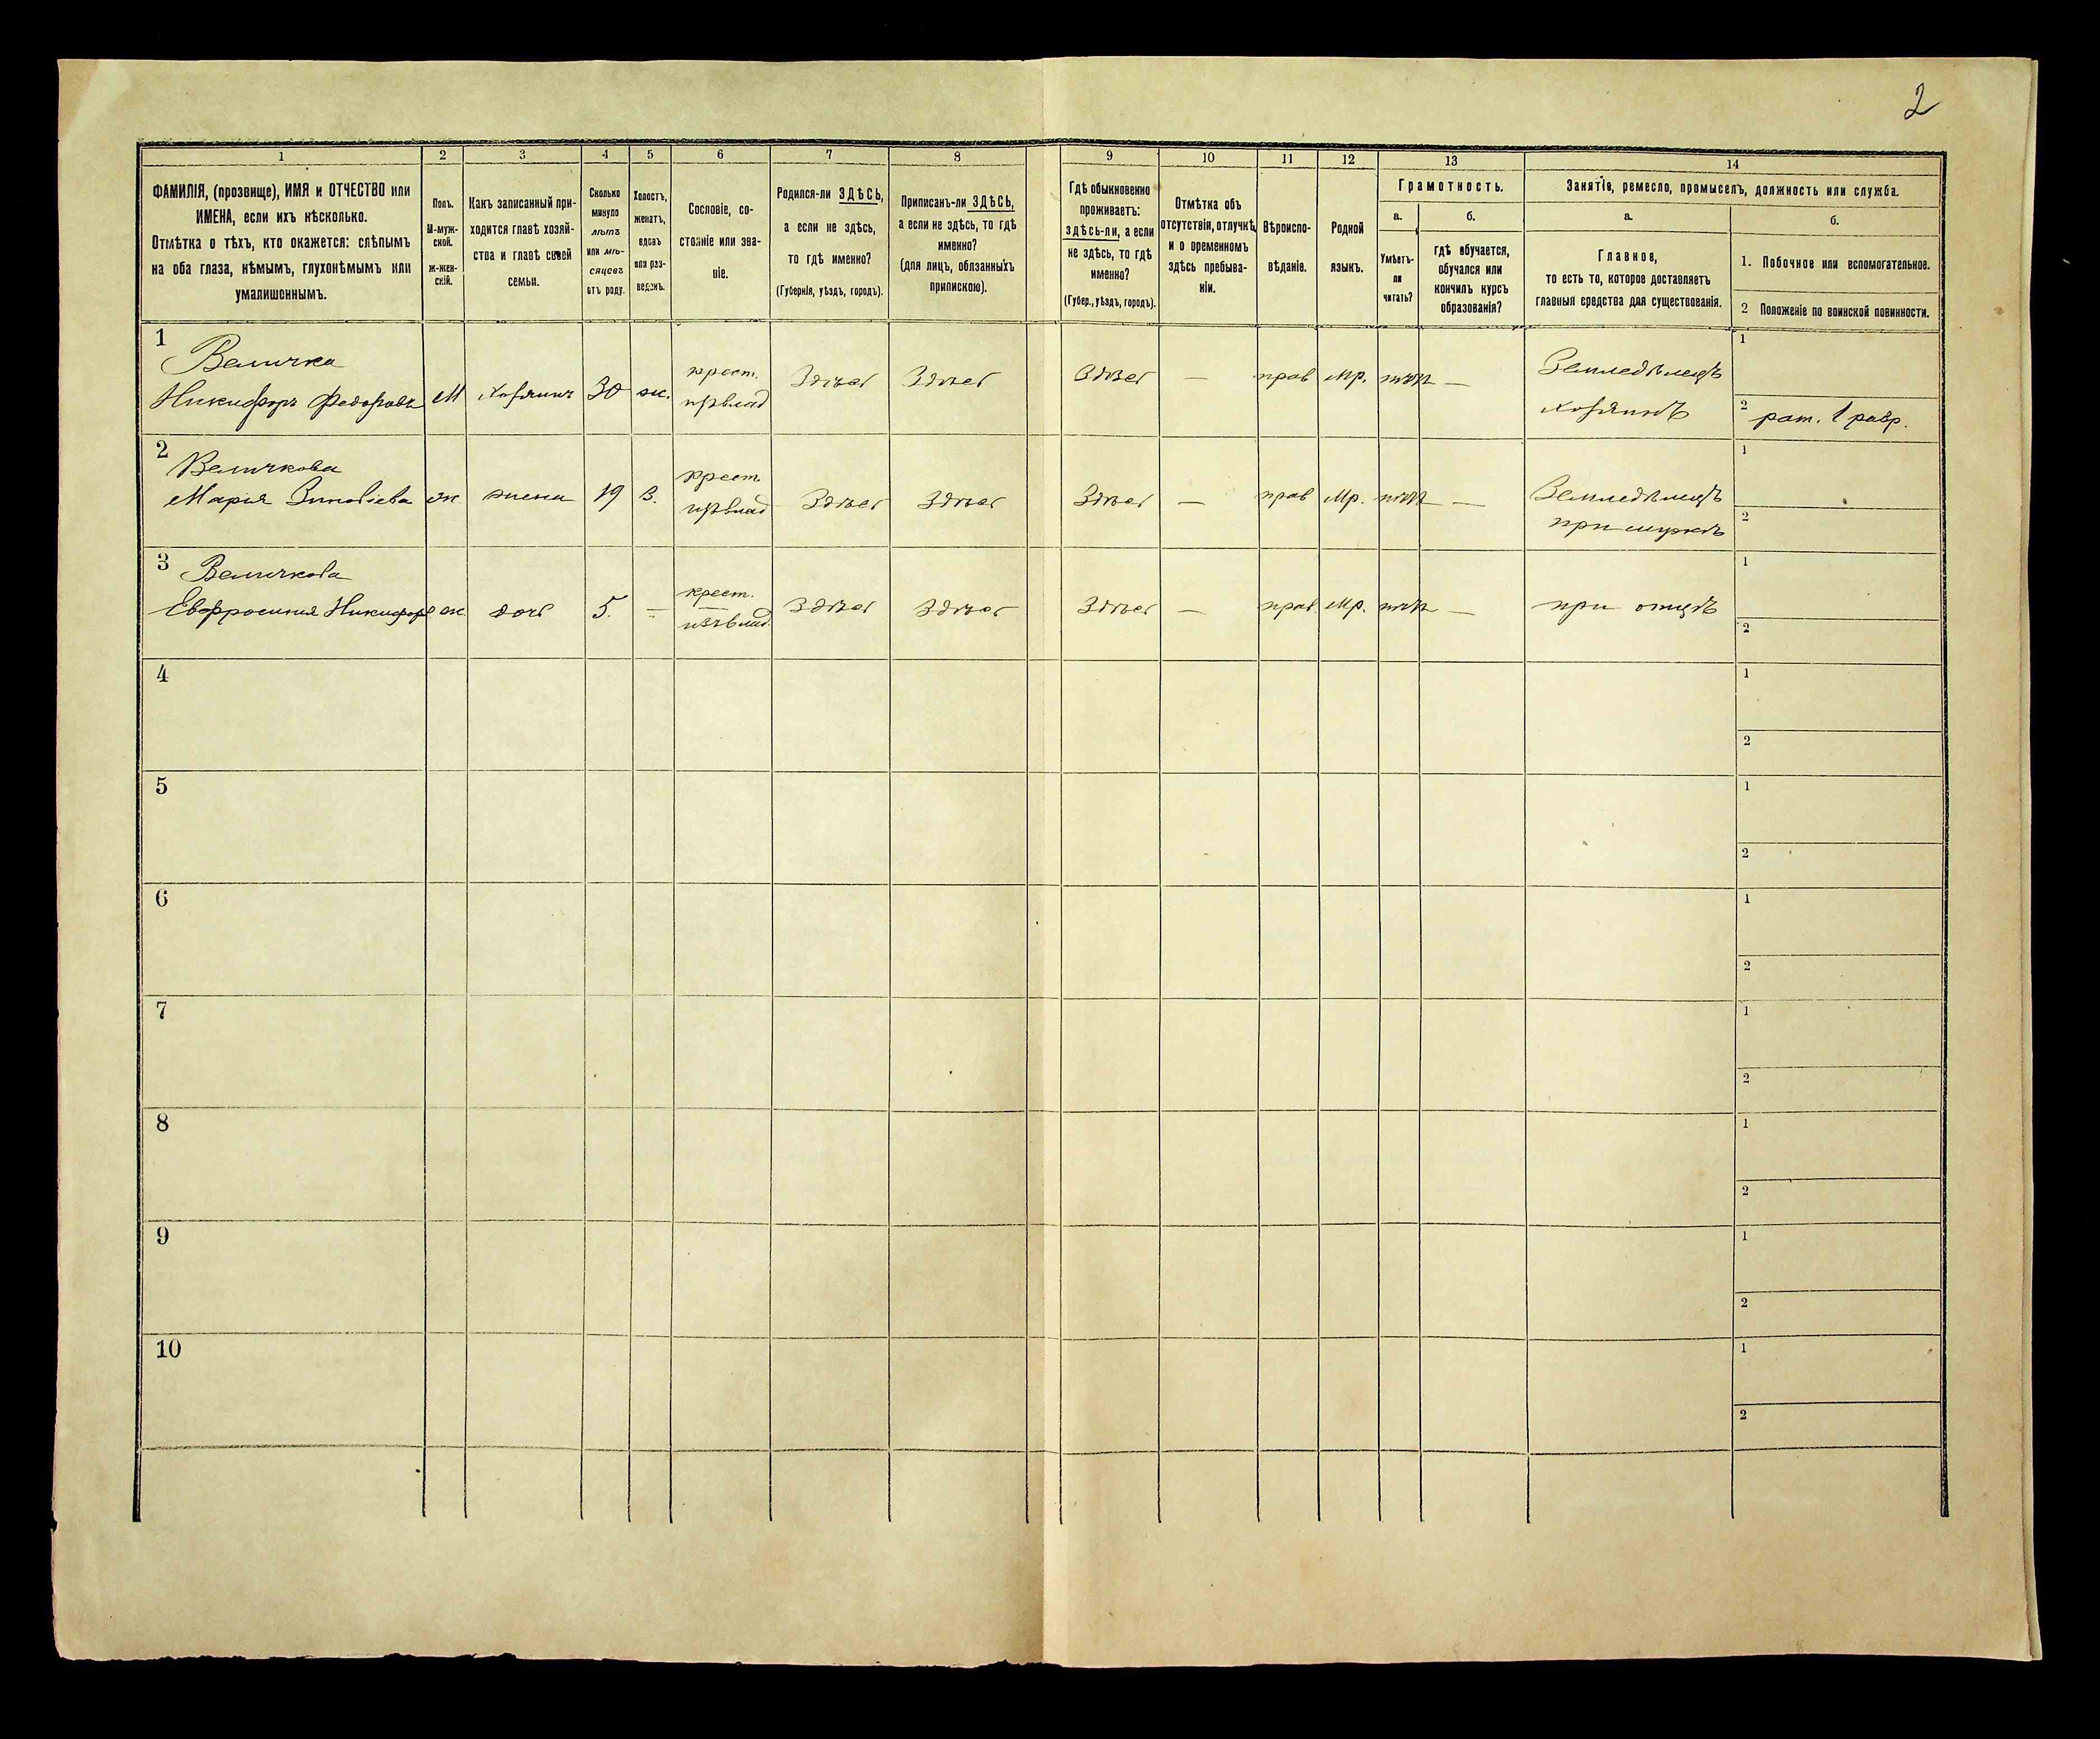 2
1 2 3 4 5 6 7 8 9 10 11 12 13 14
ФАМИЛІЯ, (прозвище), ИМЯ и ОТЧЕСТВО или
ИМЕНА, если ихъ нѣсколько.
Отмѣтка о тѣхъ, кто окажется: слѣпымъ
на оба глаза, нѣмымъ, глухонѣмымъ или
умалишеннымъ.
Полъ.
М-муж-
ской.
ж-жен-
скій.
Какъ записанный при-
ходится главѣ хозяй-
ства и главѣ своей
семьи.
Сколько
минуло
лѣтъ
или мѣ-
сяцевъ
отъ роду.
Холостъ,
женатъ,
вдовъ
или раз-
веденъ.
Сословіе, со-
стояніе или зва-
ніе.
Родился-ли ЗДѢСЬ,
а если не здѣсь,
то гдѣ именно?
(Губернія, уѣздъ, городъ).
Приписанъ-ли ЗДѢСЬ,
а если не здѣсь, то гдѣ
именно?
(для лицъ, обязанныхъ
припискою).
Гдѣ обыкновенно
проживаетъ:
здѣсь-ли, а если
не здѣсь, то гдѣ
именно?
(Губер., уѣздъ, городъ).
Отмѣтка объ
отсутствіи, отлучкѣ,
и о временномъ
здѣсь пребыва-
ніи.
Вѣроиспо-
вѣданіе.
Родной
языкъ.
Грамотность.
а.
Умѣетъ-
ли
читать?
б.
гдѣ обучается,
обучался или
кончилъ курсъ
образованія?
Занятія, ремесло, промыселъ, должность или служба.
а.
Главное,
то есть то, которое доставляетъ
главныя средства для существованія.
б.
1. Побочное или вспомогательное.
2 Положеніе по воинской повинности.
1
Величка
Никифоръ Федоровъ М Хозяинъ 30 ж. крест.
изъ влад Здѣсь Здѣсь Здѣсь — прав Мр. нѣтъ — Земледѣлецъ
хозяинъ
1
2 рат. 1 разр.
2
Величкова
Мария Зиновіева ж жена 29 з. крест
изъ влад Здѣсь Здѣсь Здѣсь — прав Мр. нѣтъ — Земледѣлецъ
при мужѣ
1
2
3
Величкова
Евфросиния Никифор. ж. дочь 5. — крест.
изъ влад. Здѣсь Здѣсь Здѣсь — прав. Мр. нѣтъ — при отцѣ
1
2
4
1
2
5
1
2
6
1
2
7
1
2
8
1
2
9
1
2
10
1
2